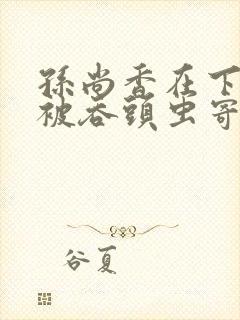 孫尚香在下
被吞頭虫寄
谷夏